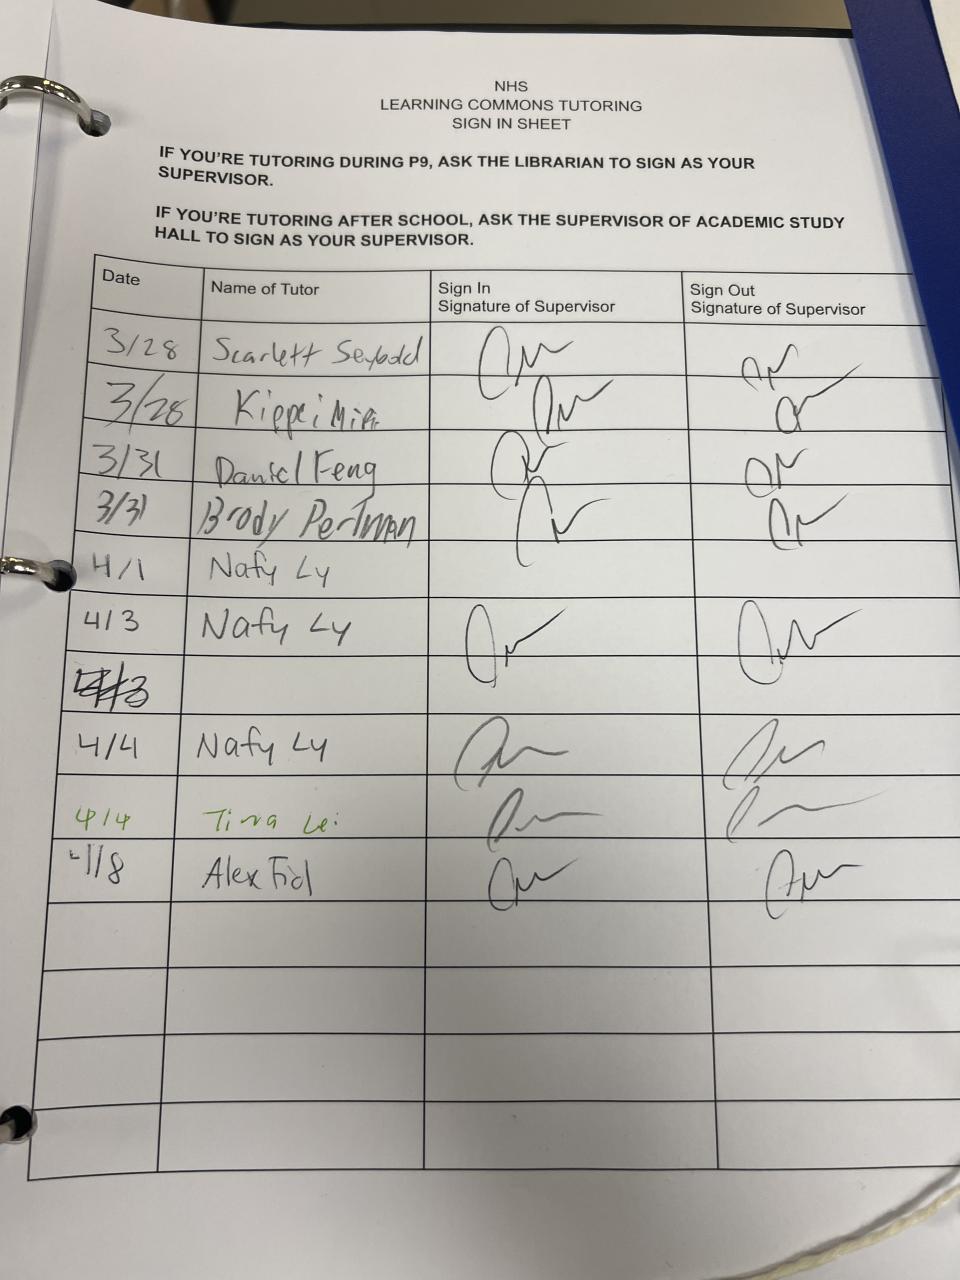 NHS
LEARNING COMMONS TUTORING
SIGN IN SHEET
IF YOU'RE TUTORING DURING P9, ASK THE LIBRARIAN TO SIGN AS YOUR
SUPERVISOR.
IF YOU'RE TUTORING AFTER SCHOOL, ASK THE SUPERVISOR OF ACADEMIC STUDY
HALL TO SIGN AS YOUR SUPERVISOR.
Date Name of Tutor Sign In Sign Out
Signature of Supervisor Signature of Supervisor
3/28 Scarlett
3/28 Kippei
3/31 Daniel Feng
3/31 Brody Perlman
4/1 Nafy Ly
4/3 Nafy Ly
4/3
4/4 Nafy Ly
4/4 Tina Lei
4/8 Alex